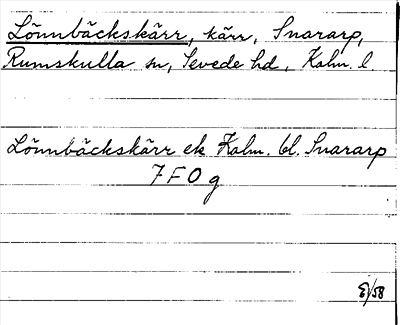 Lönnbäckskärr, kärr, Snararp,
Rumskulla sn, Sevede hd, Kalm. l
Lönnbäckskärr ek Kalm. bl. Snararp
7 F 0 g
E/58